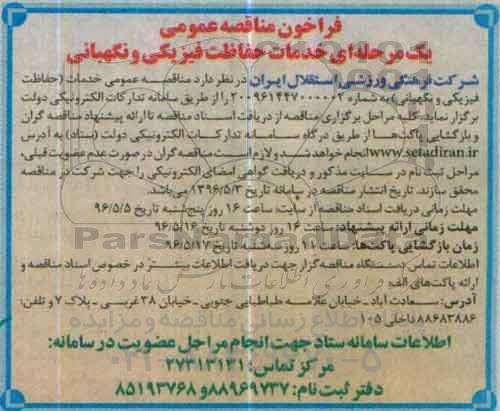 فراخون مناقصه عمومی
یک مرحله‌ای خدمات حفاظت فیزیکی و نگهبانی
شرکت فرهنگی ورزشی استقلال ایران در نظر دارد مناقصه عمومی خدمات (حفاظت
فیزیکی و نگهبانی) به شماره ۲۰۰۹۶۱۴۴۷۰۰۰۰۰۲ را از طریق سامانه تدارکات الکترونیکی دولت
برگزار نماید. کلیه مراحل برگزاری مناقصه از دریافت اسناد مناقصه تا ارائه پیشنهاد مناقصه گران
و بازگشایی پاکت‌ها از طریق درگاه سامانه تدارکات الکترونیکی دولت (ستاد) به آدرس
www.setadiran.ir انجام خواهد شد و لازم است مناقصه گران در صورت عدم عضویت قبلی،
مراحل ثبت نام در سایت مذکور و دریافت گواهی امضای الکترونیکی را جهت شرکت در مناقصه
محقق سازند. تاریخ انتشار مناقصه در سامانه تاریخ ۱۳۹۶/۵/۳ می‌باشد.
مهلت زمانی دریافت اسناد مناقصه از سایت: ساعت ۱۶ روز پنج‌شنبه تاریخ ۹۶/۵/۵
مهلت زمانی ارائه پیشنهاد: ساعت ۱۶ روز دوشنبه تاریخ ۹۶/۵/۱۶
زمان بازگشایی پاکت‌ها: ساعت ۱۱ روز سه‌شنبه تاریخ ۹۶/۵/۱۷
اطلاعات تماس دستگاه مناقصه‌گزار جهت دریافت اطلاعات بیشتر در خصوص اسناد مناقصه و
ارائه پاکت‌های الف:
آدرس: سعادت آباد - خیابان علامه طباطبایی جنوبی - خیابان ۳۸ غربی - پلاک ۷ و تلفن:
۸۸۶۸۳۸۸۶ داخلی ۱۰۵
اطلاعات سامانه ستاد جهت انجام مراحل عضویت در سامانه:
مرکز تماس: ۲۷۳۱۳۱۳۱
دفتر ثبت نام: ۸۸۹۶۹۷۳۷ و ۸۵۱۹۳۷۶۸